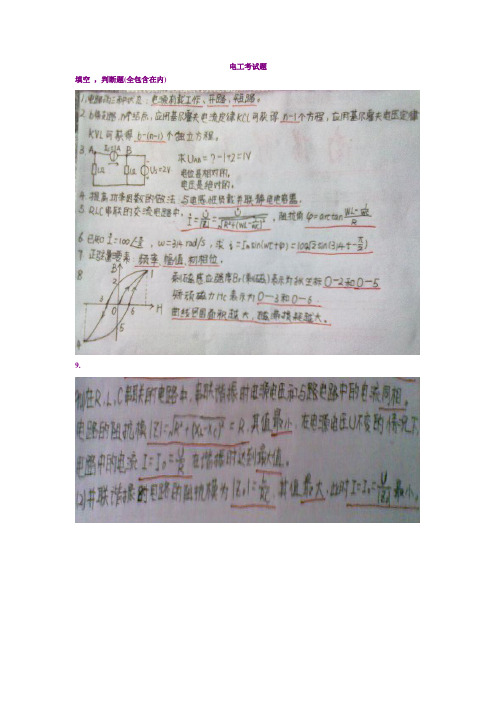 电工考试题
填空，判断题(全包含在内)
1.电路的三种状态：电源有载工作、开路、短路。
2. b条支路，n个结点，应用基尔霍夫电流定律KCL可获得 n-1个方程，应用基尔霍夫电压定律
KVL可获得 b-(n-1) 个独立方程。
3. A B
1Ω 1Ω U₂=2V
求UAB=? -1+2=1V
电位是相对的，
电压是绝对的。
4. 提高功率因数的做法：与电感性负载并联静电电容器
5. RLC串联的交流电路中，阻抗角φ=arctan
6. 已知 ω=314 rad/s，求 i=Imsin(ωt+φ)=100√2sin(314t-π/3)
7. 正弦量要素：频率、幅值、初相位。
8
B
H
1
2
3
4
5
6
0
剩磁感应强度Br(剩磁)表示为纵坐标 0-2和0-5
矫顽磁力Hc表示为 0-3和0-6
曲线包围面积越大，磁滞损耗越大。
9.
(1)在R、L、C串联的电路中，串联谐振时电源电压和与路电路中的电流同相。
电路的阻抗模 |Z|=√R²+(XL-Xc)² = R，其值最小，在电源电压U不变的情况下，
电路中的电流 I=I₀=U/R 在谐振时达到最大值。
(2)并联谐振时电路的阻抗模为 |Z₀|=L/RC，其值最大，此时 I=I₀=U/|Z₀| 最小。